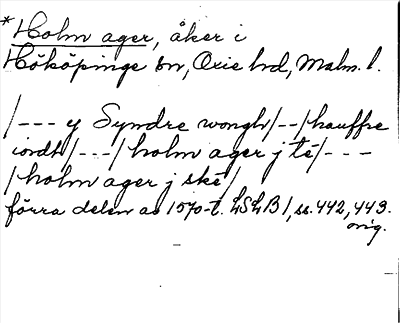 *Holm ager, åker i
Hököpinge sn, Oxie hd, Malm. l.
/--- y Syndre wongh/--/hauffre
iordh/---/holm ager j té/---
/holm ager j ské/
förra delen av 1570-t. LSLB 1, ss. 442, 443.
orig.